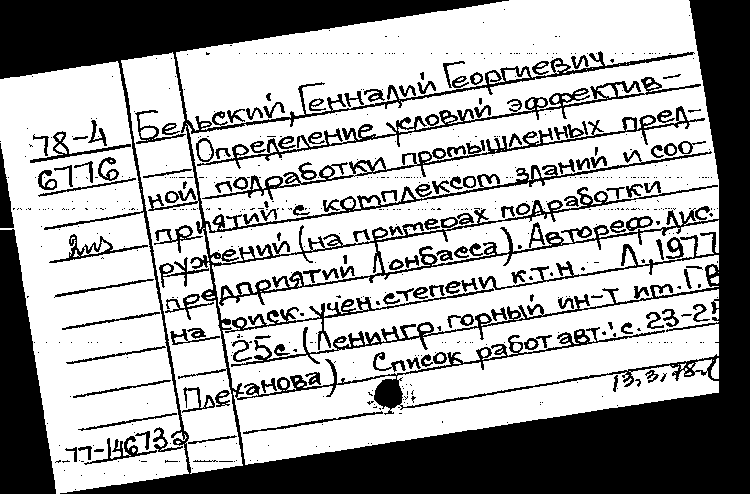 Бельский, Геннадий Георгиевич.
78-4
6776
2 из
Определение условий эффектив-
ной подработки промышленных пред-
приятий с комплексом зданий и соо-
ружений (на примерах подработки
предприятий Донбасса). Автореф. дис.
на соиск. учен. степени к.т.н. - Л., 1977
25с. (Ленингр. горный ин-т им. Г.В
Плеханова). Список работ авт.: с. 23-25
13.3.78.
77-14673